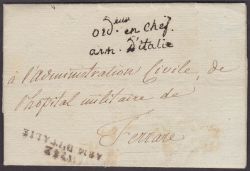 Ord.eur en chef.
arm. d'italie
à l'administration Civile, de
l'hopital militaire de
Ferrare
ARM D'ITALIE